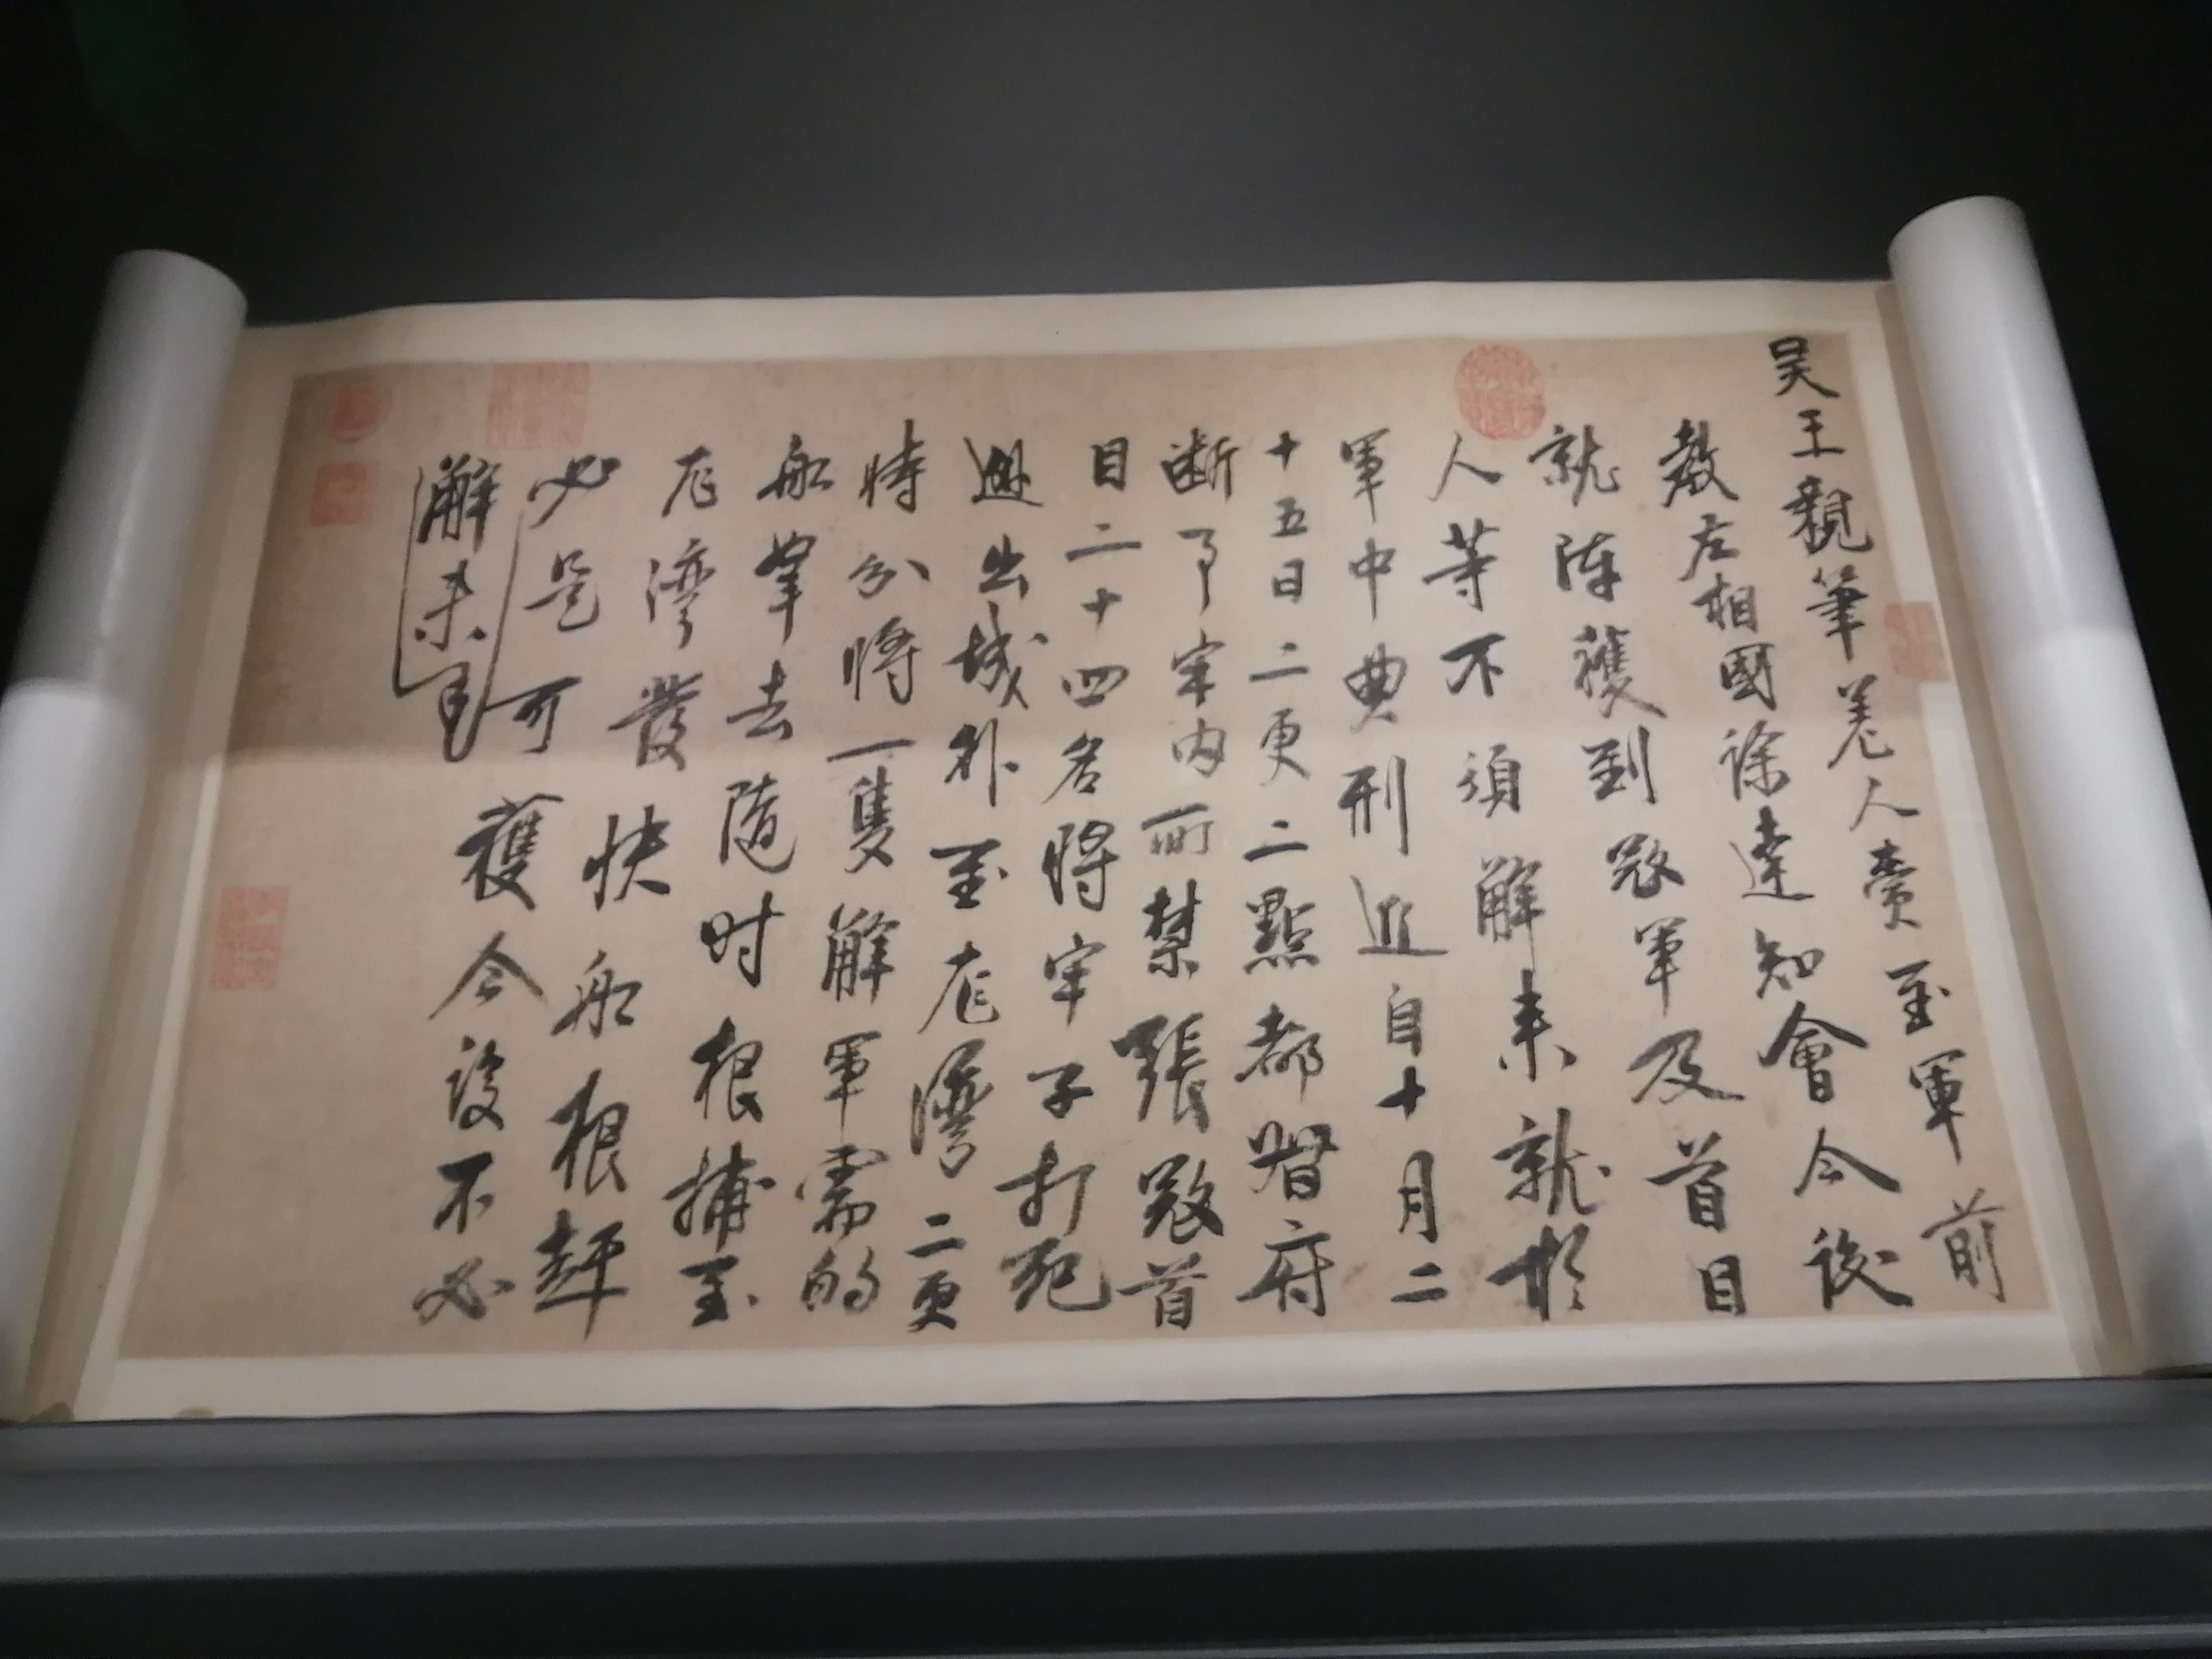 吳王親筆差人賫至軍前
教左相國徐達知會今後
就陣獲到寇軍及首目
人等不須解來就於
軍中典刑近自十月二
十五日二更二點都督府
斷事牢內所禁張寇首
目二十四名將牢子打死
越出城外至龙灣二更
時分將一隻解軍需的
船拏去隨时根捕至
龙灣發快船根趕
必是可獲今後不必
解來